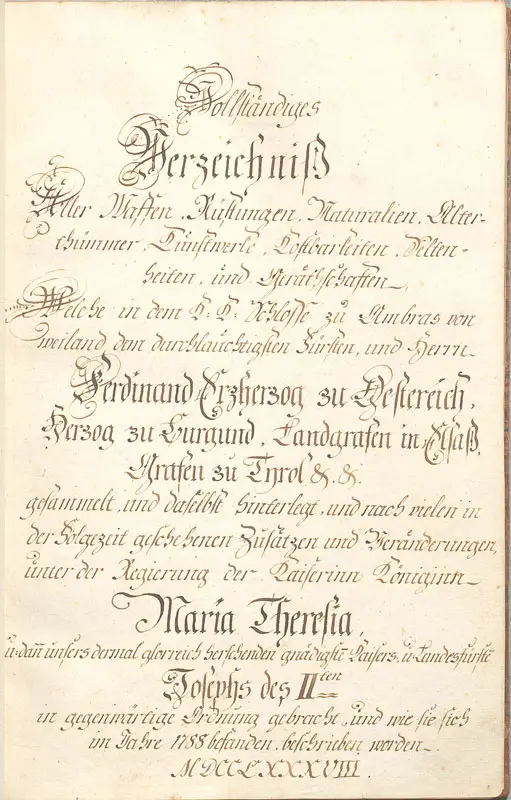 Vollständiges
Verzeichniß
Aller Waffen, Rüstungen, Naturalien, Alter-
thümmer, Kunstwerke, Kostbarkeiten, Selten-
heiten, und Geräthschaften
Welche in dem K: K: Schlosse zu Ambras von
weiland dem durchläuchtigsten Fürsten, und Herrn
Ferdinand Erzherzog zu Oestereich,
Herzog zu Burgund, Landgrafen in Elsaß,
Grafen zu Tyrol &. &.
gesammelt, und daselbst hinterlegt, und nach vielen in
der Folgezeit geschehenen Zusätzen und Veränderungen,
unter der Regierung der Kaiserinn Königinn
Maria Theresia,
u. dañ unsers dermal glorreich herschenden gnädigstē Kaisers, u. Landesfürstē
Josephs des II ten
in gegenwärtige Ordnung gebracht, und wie sie sich
im Jahre 1788 befanden, beschrieben worden.
MDCCLXXXVIII.